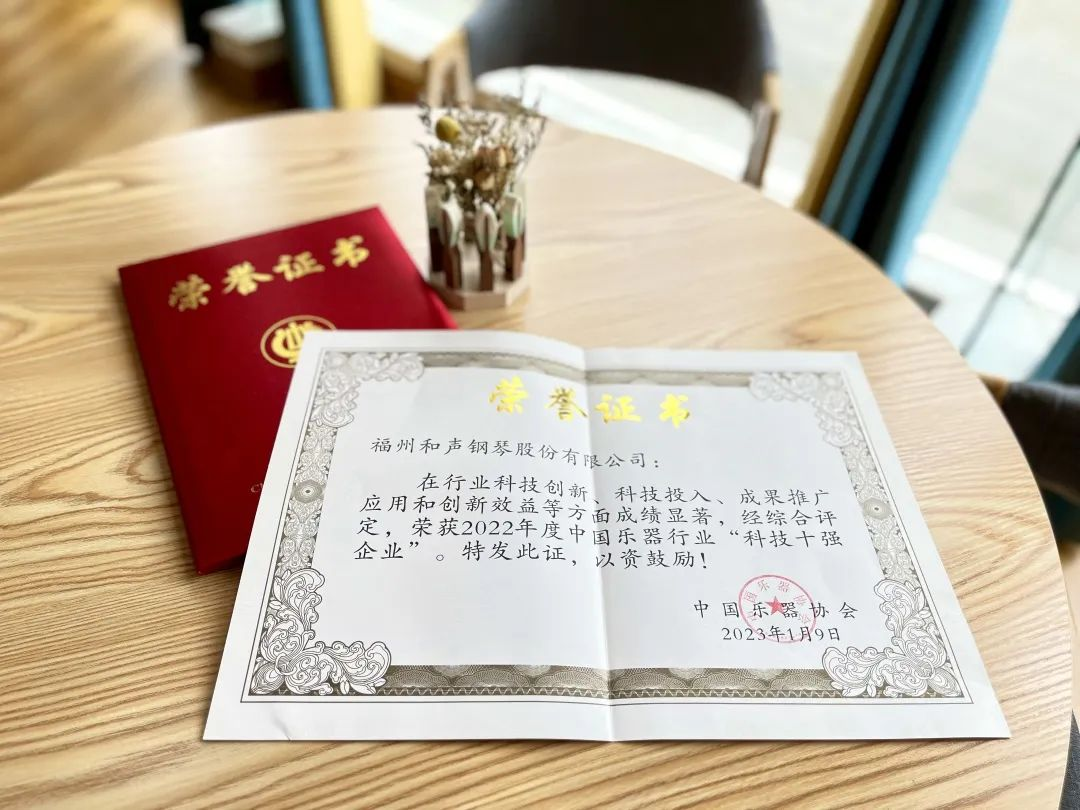 荣誉证书
荣誉证书
福州和声钢琴股份有限公司：
在行业科技创新、科技投入、成果推广
应用和创新效益等方面成绩显著，经综合评
定，荣获2022年度中国乐器行业“科技十强
企业”。特发此证，以资鼓励！
中国乐器协会
2023年1月9日